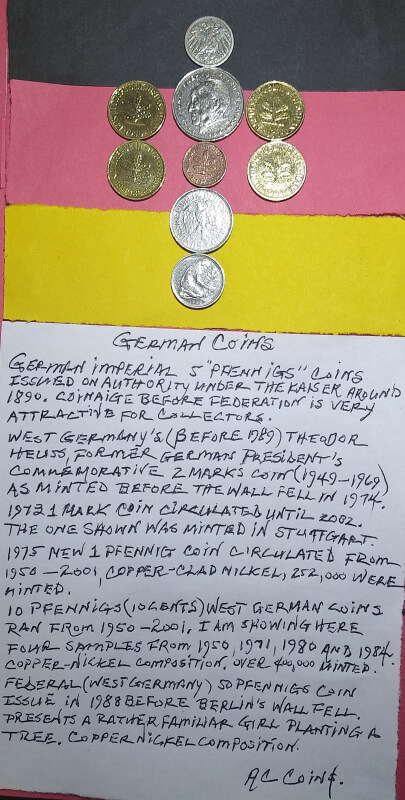 GERMAN COINS
GERMAN IMPERIAL 5 "PFENNIGS" COINS
ISSUED ON AUTHORITY UNDER THE KAISER AROUND
1890. COINAIGE BEFORE FEDERATION IS VERY
ATTRACTIVE FOR COLLECTORS.
WEST GERMANY'S (BEFORE 1989) THEODOR
HEUSS, FORMER GERMAN PRESIDENT'S
COMMEMORATIVE 2 MARKS COIN (1949-1969)
AS MINTED BEFORE THE WALL FELL IN 1974.
1973 1 MARK COIN CIRCULATED UNTIL 2002.
THE ONE SHOWN WAS MINTED IN STUTTGART.
1975 NEW 1 PFENNIG COIN CIRCULATED FROM
1950-2001, COPPER-CLAD NICKEL, 252,000 WERE
MINTED.
10 PFENNIGS (10 CENTS) WEST GERMAN COINS
RAN FROM 1950-2001. I AM SHOWING HERE
FOUR SAMPLES FROM 1950, 1971, 1980 AND 1984.
COPPER-NICKEL COMPOSITION, OVER 400,000 MINTED.
FEDERAL (WEST GERMANY) 50 PFENNIGS COIN
ISSUE IN 1988 BEFORE BERLIN'S WALL FELL.
PRESENTS A RATHER FAMILIAR GIRL PLANTING A
TREE. COPPER NICKEL COMPOSITION.
AC COINS.